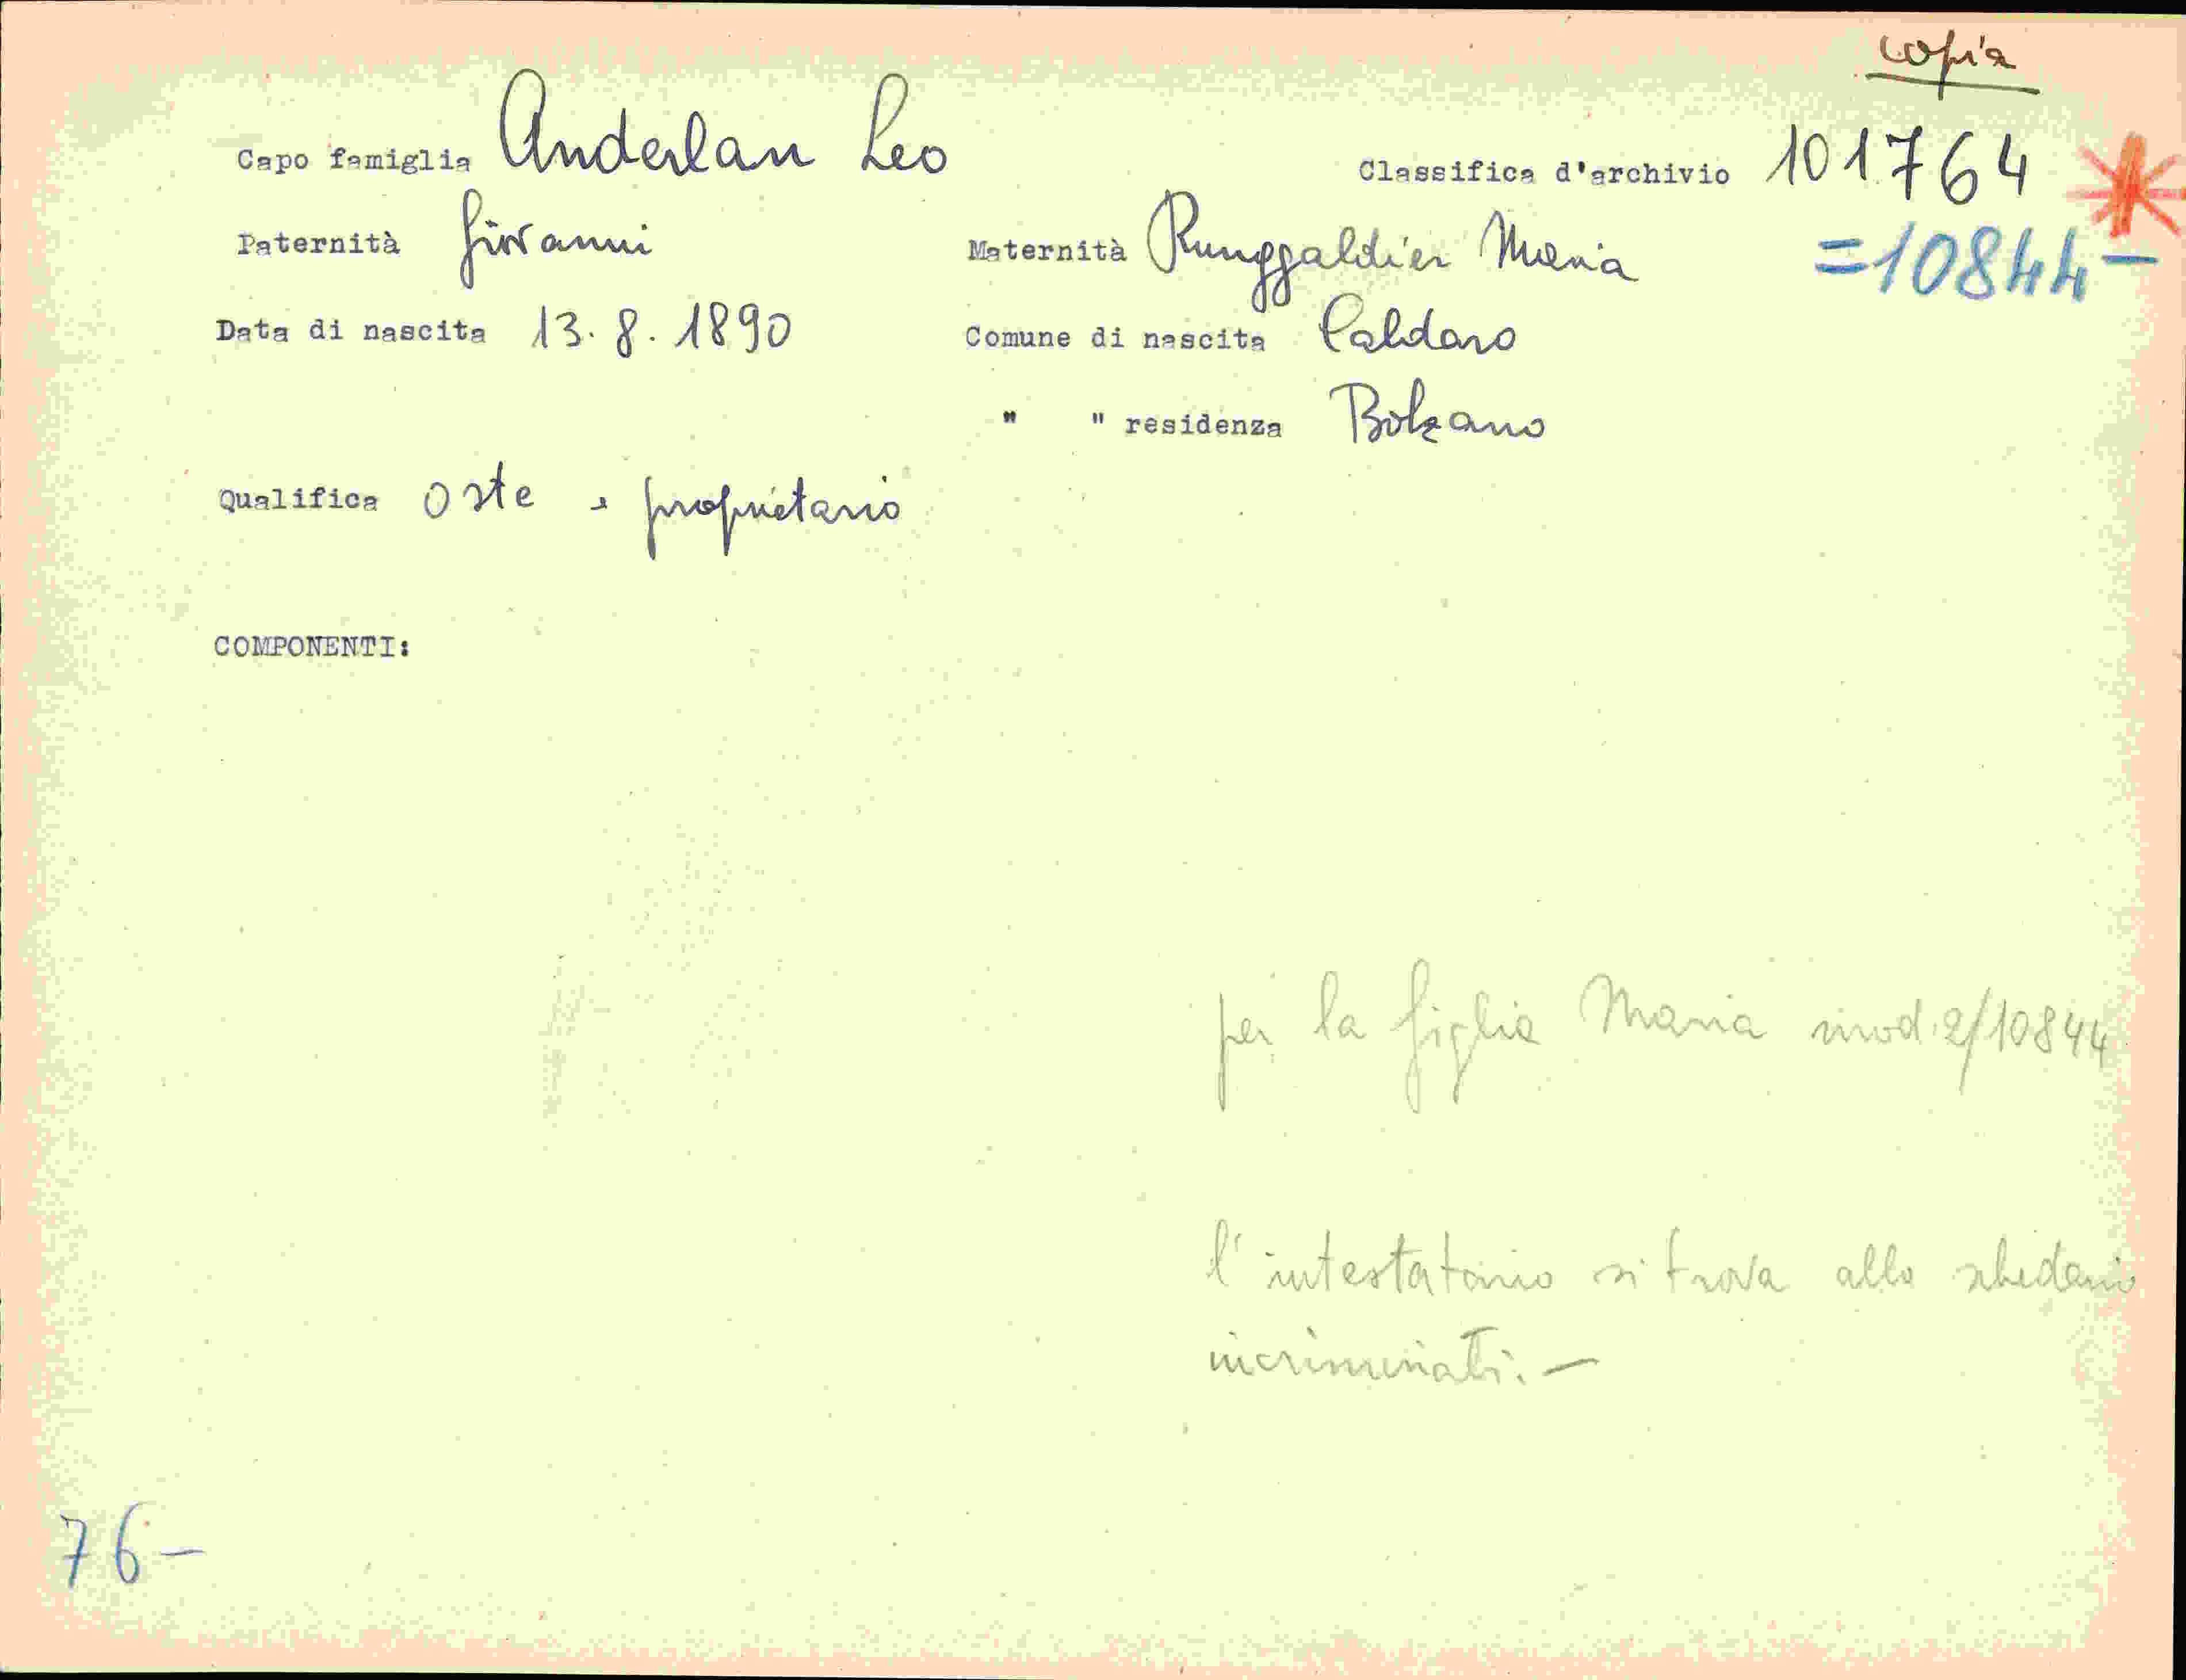 copia
Capo famiglia Anderlan Leo Classifica d'archivio 101764
Paternità Giovanni Maternità Runggaldier Maria =10844-
Data di nascita 13.8.1890 Comune di nascita Caldaro
" " residenza Bolzano
Qualifica Oste e proprietario
COMPONENTI:
per la figlia Maria mod. 2/10844
l'intestatario si trova allo schedario
incriminati. -
76-